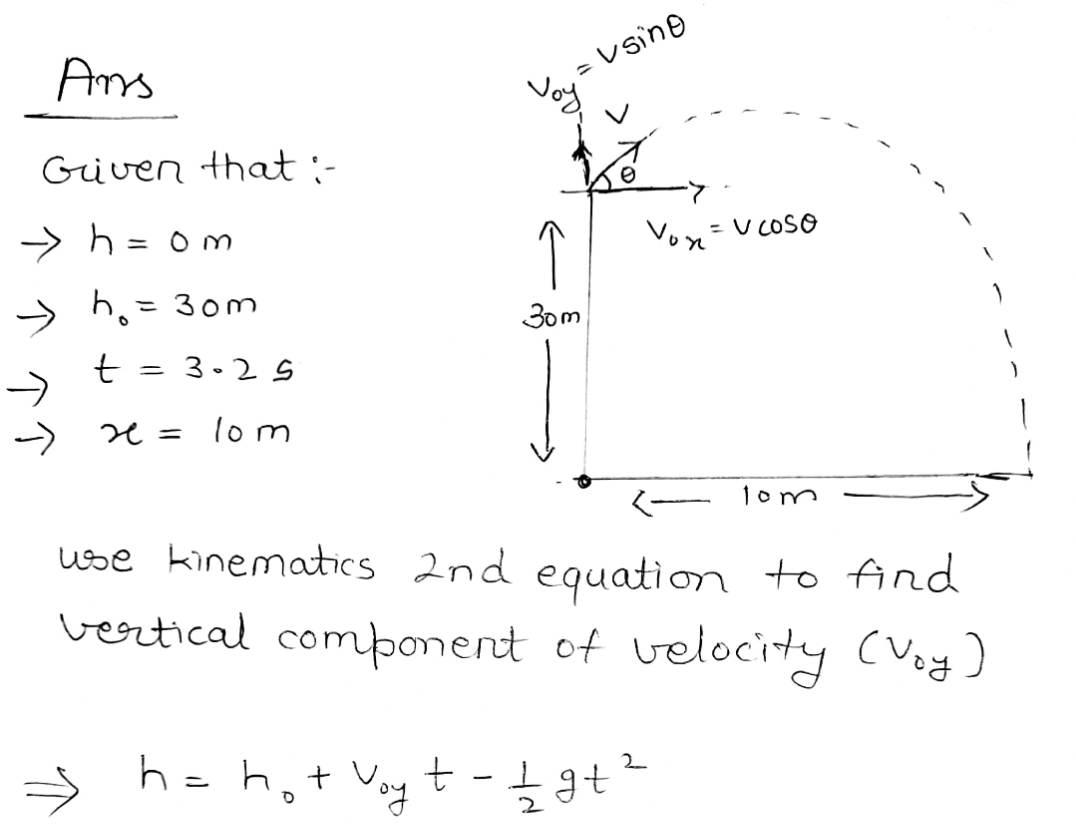 Ans
Given that :-
→ h = 0 m
→ h₀ = 30m
→ t = 3.2 s
→ x = 10 m
V₀y = V sinθ
V
θ
V₀x = V cosθ
30m
10m
use kinematics 2nd equation to find
vertical component of velocity (V₀y)
⇒ h = h₀ + V₀y t - 1/2 gt²